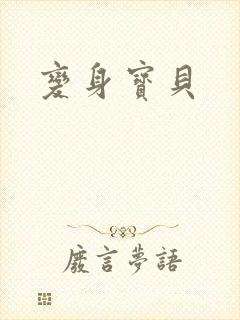 變身寶貝
廢言夢語